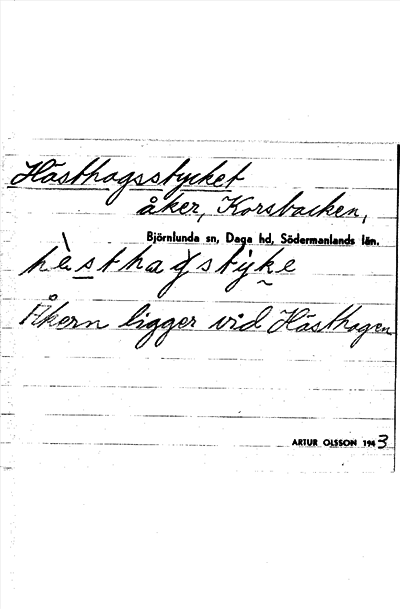 Hästhagsstycket
åker, Korsbacken,
Björnlunda sn, Daga hd, Södermanlands län.
Åkern ligger vid Hästhagen
ARTUR OLSSON 1943